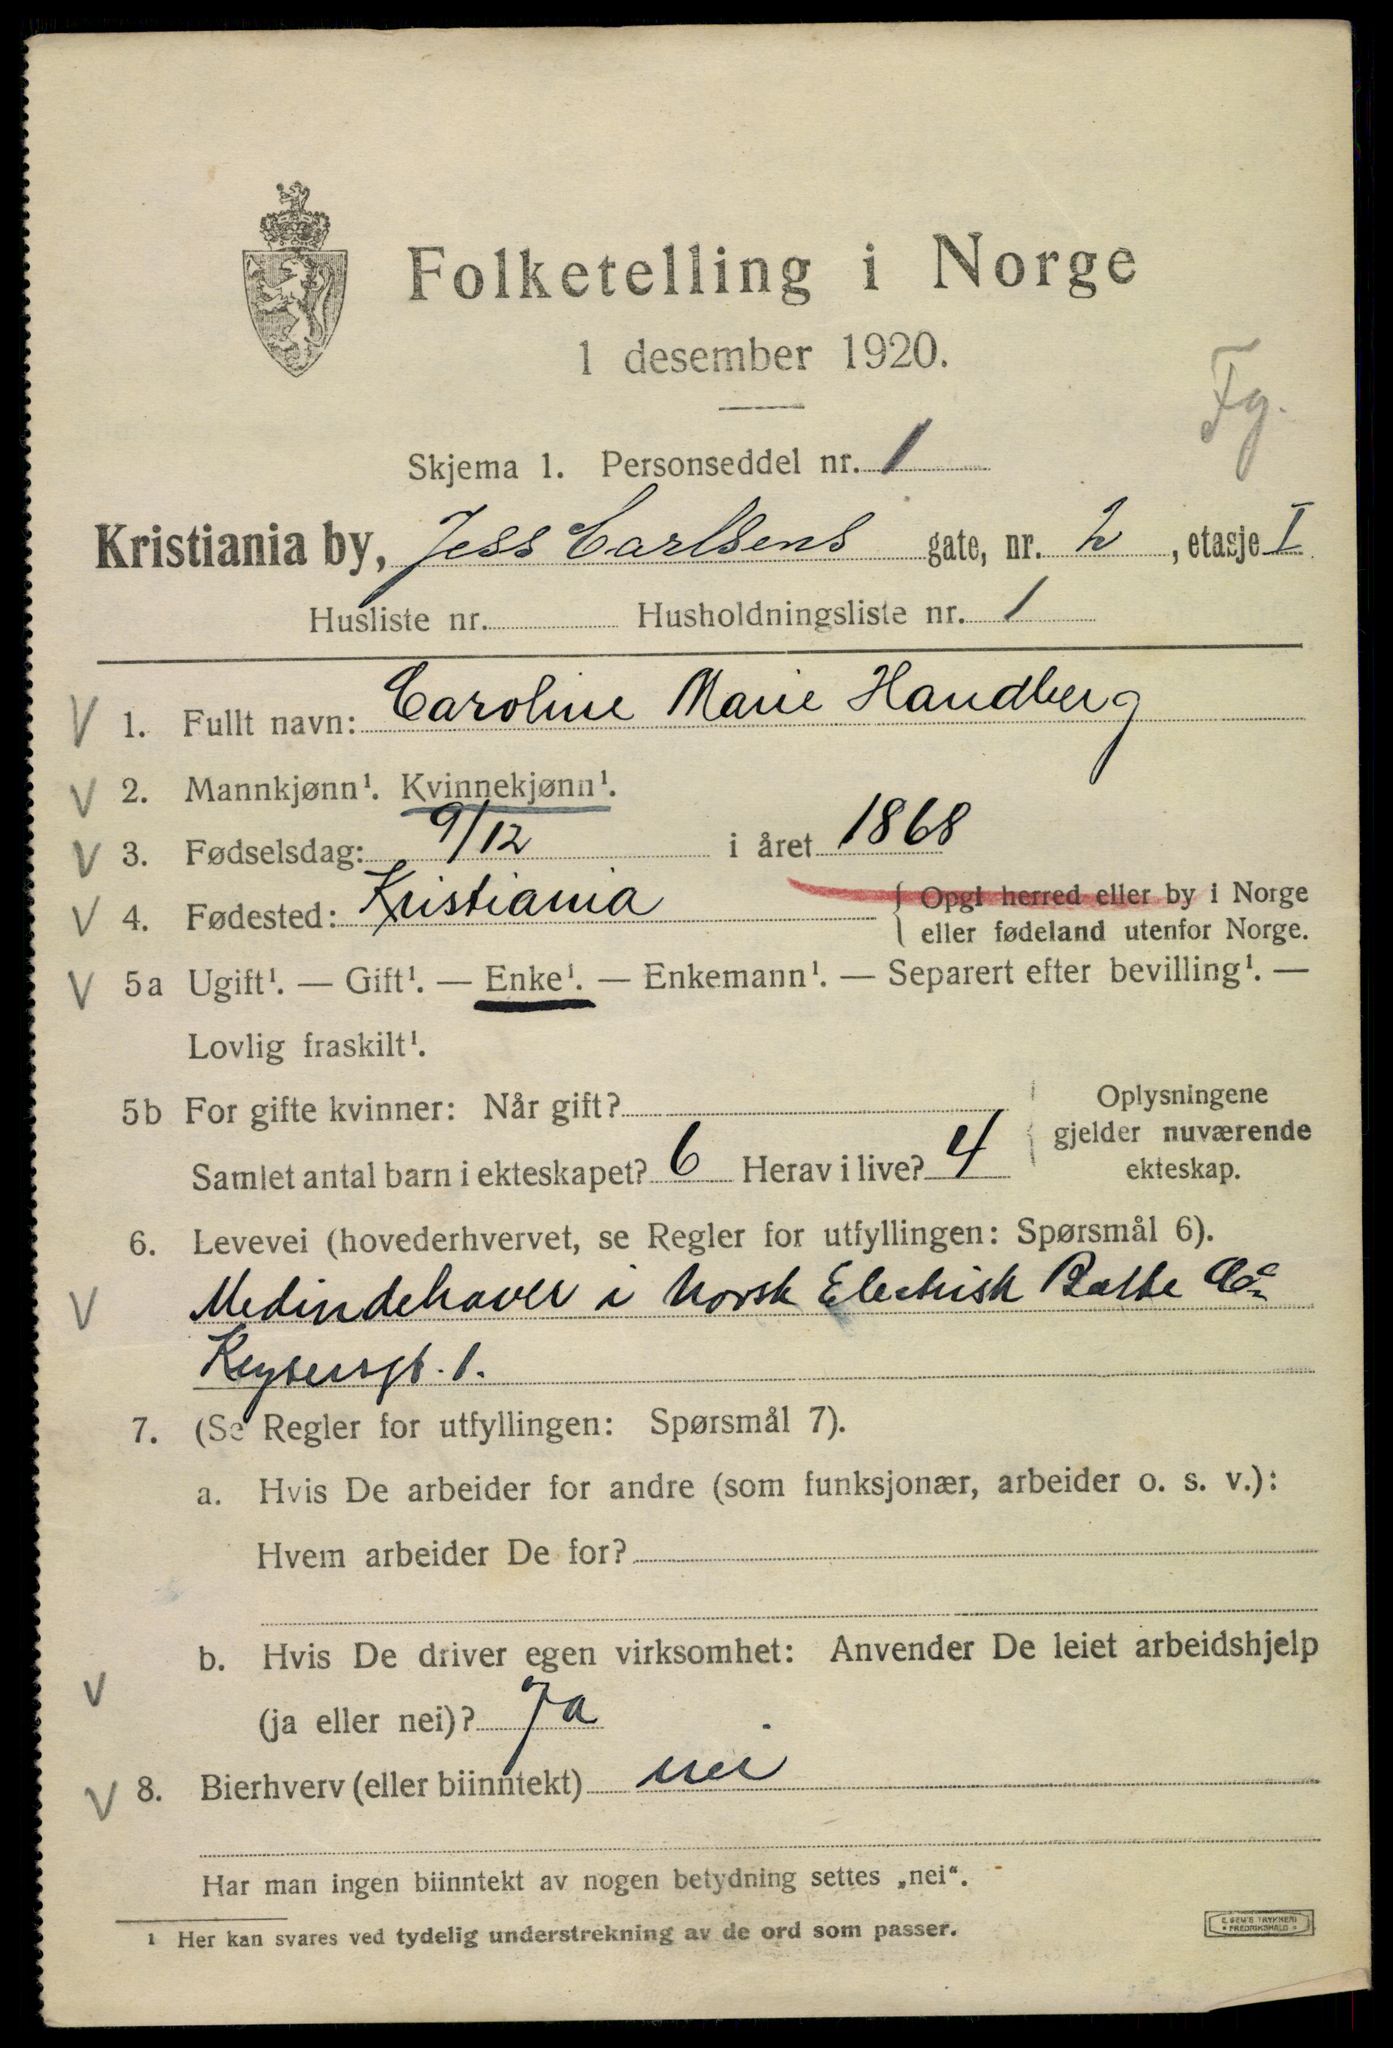 Folketelling i Norge
1 desember 1920.
Fg.
Skjema 1. Personseddel nr. 1
Kristiania by, Jess Carlsens gate, nr. 2, etasje I
Husliste nr. Husholdningsliste nr. 1
V 1. Fullt navn: Caroline Marie Handberg
V 2. Mannkjønn¹. Kvinnekjønn¹.
V 3. Fødselsdag: 9/12 i året 1868
V 4. Fødested: Kristiania { Opgi herred eller by i Norge
eller fødeland utenfor Norge.
V 5a Ugift¹. — Gift¹. — Enke¹. — Enkemann¹. — Separert efter bevilling¹. —
Lovlig fraskilt¹.
5b For gifte kvinner: Når gift?
Samlet antal barn i ekteskapet? 6 Herav i live? 4
Oplysningene
gjelder nuværende
ekteskap.
6. Levevei (hovederhvervet, se Regler for utfyllingen: Spørsmål 6).
V Medindehaver i Norsk Electrisk Co
Keysersgt. 1.
7. (Se Regler for utfyllingen: Spørsmål 7).
a. Hvis De arbeider for andre (som funksjonær, arbeider o. s. v.):
Hvem arbeider De for?
b. Hvis De driver egen virksomhet: Anvender De leiet arbeidshjelp
V (ja eller nei)? Ja
V 8. Bierhverv (eller biinntekt) nei
Har man ingen biinntekt av nogen betydning settes „nei“.
¹ Her kan svares ved tydelig understrekning av de ord som passer.
E. SEM'S TRYKKERI
FREDRIKSHALD